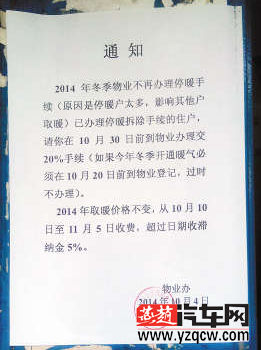 通知
2014 年冬季物业不再办理停暖手
续（原因是停暖户太多，影响其他户
取暖）已办理停暖拆除手续的住户，
请你在 10 月 30 日前到物业办理交
20%手续（如果今年冬季开通暖气必
须在 10 月 20 日前到物业登记，过时
不办理）。
2014 年取暖价格不变，从 10 月 10
日至 11 月 5 日收费，超过日期收滞
纳金 5%。
物业办
2014 年 10 月 4 日
燕赵汽车网
www.yzqcw.com